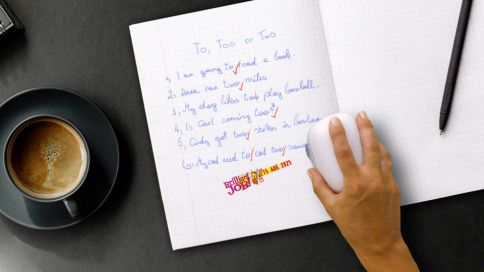 To, Too or Two
1, I am going to read a book.
2. Dana ran two miles
3, My dog likes two play baseball.
4, Is Carl coming too?
5, Andy got two strikes in
(6) My dad need to eat two
Brilliant JOB!
15. AUG. 2025